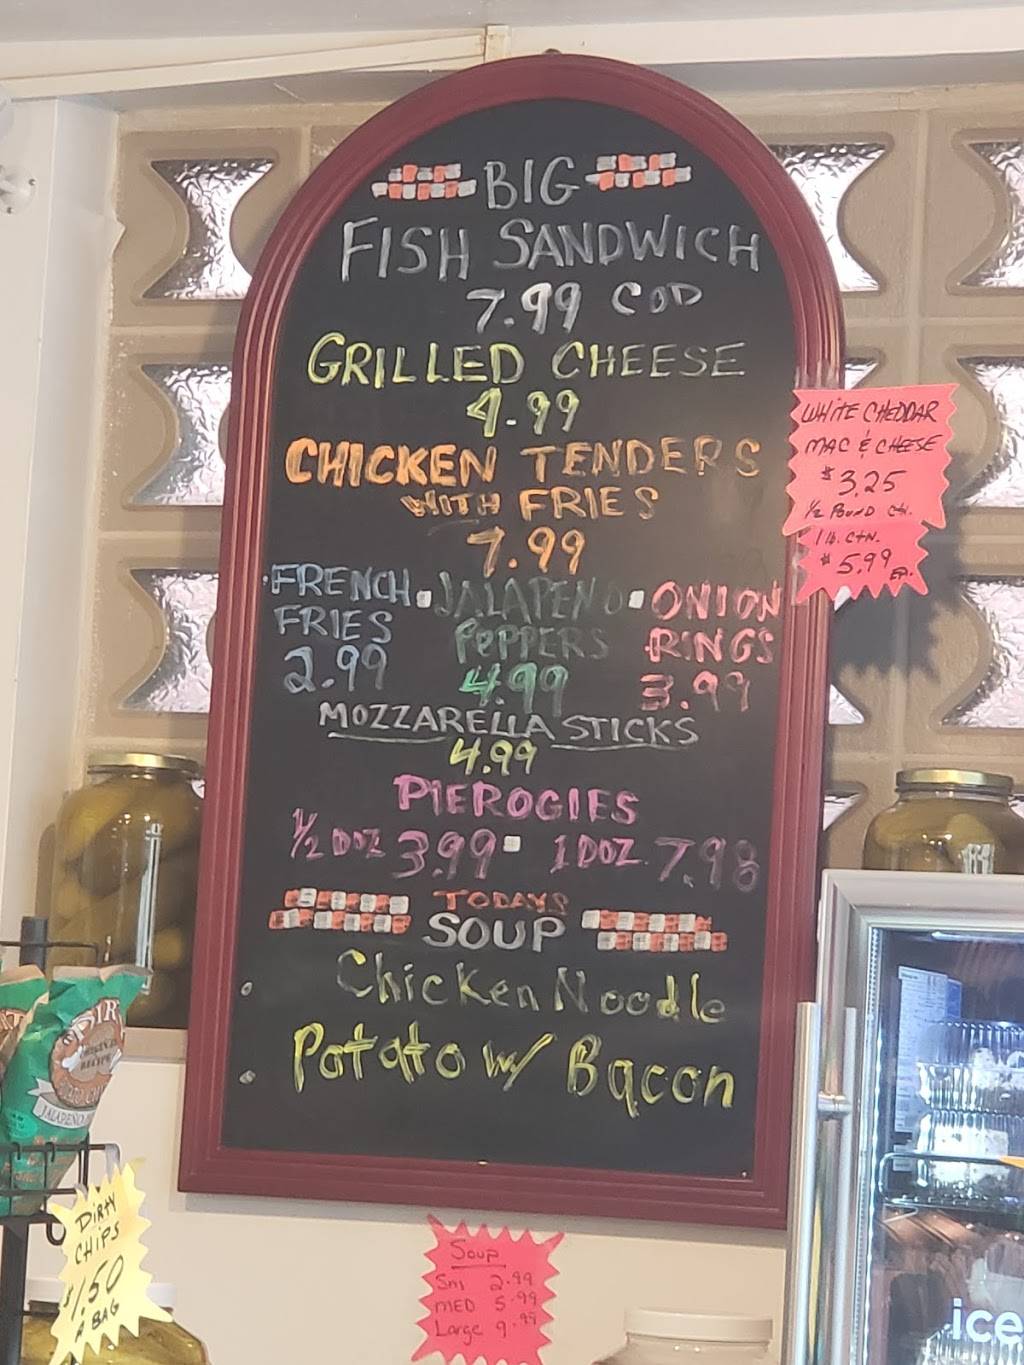 BIG
FISH SANDWICH
7.99 COD
GRILLED CHEESE
4.99
CHICKEN TENDERS
WITH FRIES
7.99
FRENCH
FRIES
2.99
JALAPENO
PEPPERS
4.99
ONION
RINGS
3.99
MOZZARELLA STICKS
4.99
PIEROGIES
1/2 DOZ 3.99 1 DOZ. 7.98
TODAYS
SOUP
Chicken Noodle
Potato w/ Bacon
WHITE CHEDDAR
MAC & CHEESE
$3.25
1/2 POUND CN.
1 lb. CTN.
$5.99 EA.
DIRTY
CHIPS
$1.50
A BAG
Soup
Sml 2.99
MED 5.99
Large 9.99
JALAPENO
ice